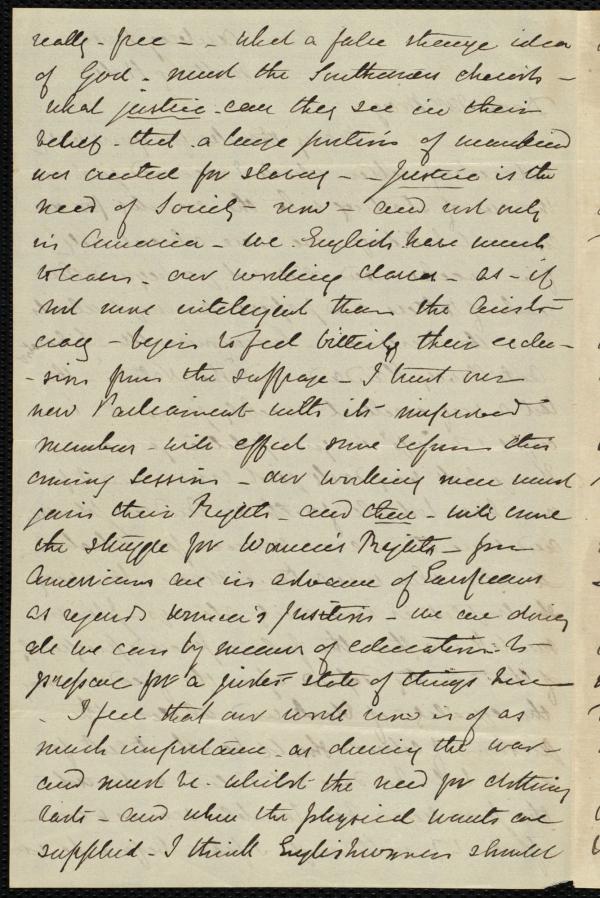 really - free - - what a false strange idea
of God - must the Southerners cherish -
what justice - can they see in their
belief - that - a large portion of mankind
was created for slavery - - Justice is the
need of Society - now - and not only
in America - we - English have much
to learn - our working classes - as - if
not more intelligent than the Aristo-
cracy - begin to feel bitterly their exclu-
-sion from the suffrage - I trust our
new Parliament with its improved
members - will effect some reform this
coming Session - our working men must
gain their Rights - and then - will come
the struggle for Women's Rights - for
Americans are in advance of Europeans
as regards women's position - we are doing
all we can by means of education - to
prepare for a juster state of things here
- I feel that our work now is of as
much importance - as during the war -
and must be - whilst the need for clothing
lasts - and when the physical wants are
supplied - I think Englishwomen should